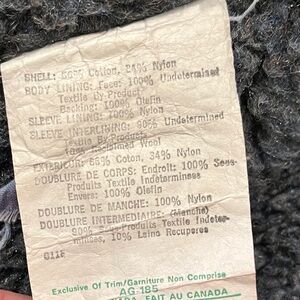 SHELL: 66% Cotton, 34% Nylon
BODY LINING: Face: 100% Undetermined
Textile By Product
Backing: 100% Olefin
SLEEVE LINING: 100% Nylon
SLEEVE INTERLINING: 90% Undetermined
Textile By Product,
10% Reclaimed Wool
EXTERIEUR: 66% Coton, 34% Nylon
DOUBLURE DE CORPS: Endroit: 100% Sous-
Produits Textile Indeterminess
Envers: 100% Olefin
DOUBLURE DE MANCHE: 100% Nylon
DOUBLURE INTERMEDIAIRE: (Manche)
90% Sous-Produits Textile Indeter-
minees, 10% Laine Recuperes
0116
Exclusive Of Trim/Garniture Non Comprise
AG 185
FAIT AU CANADA